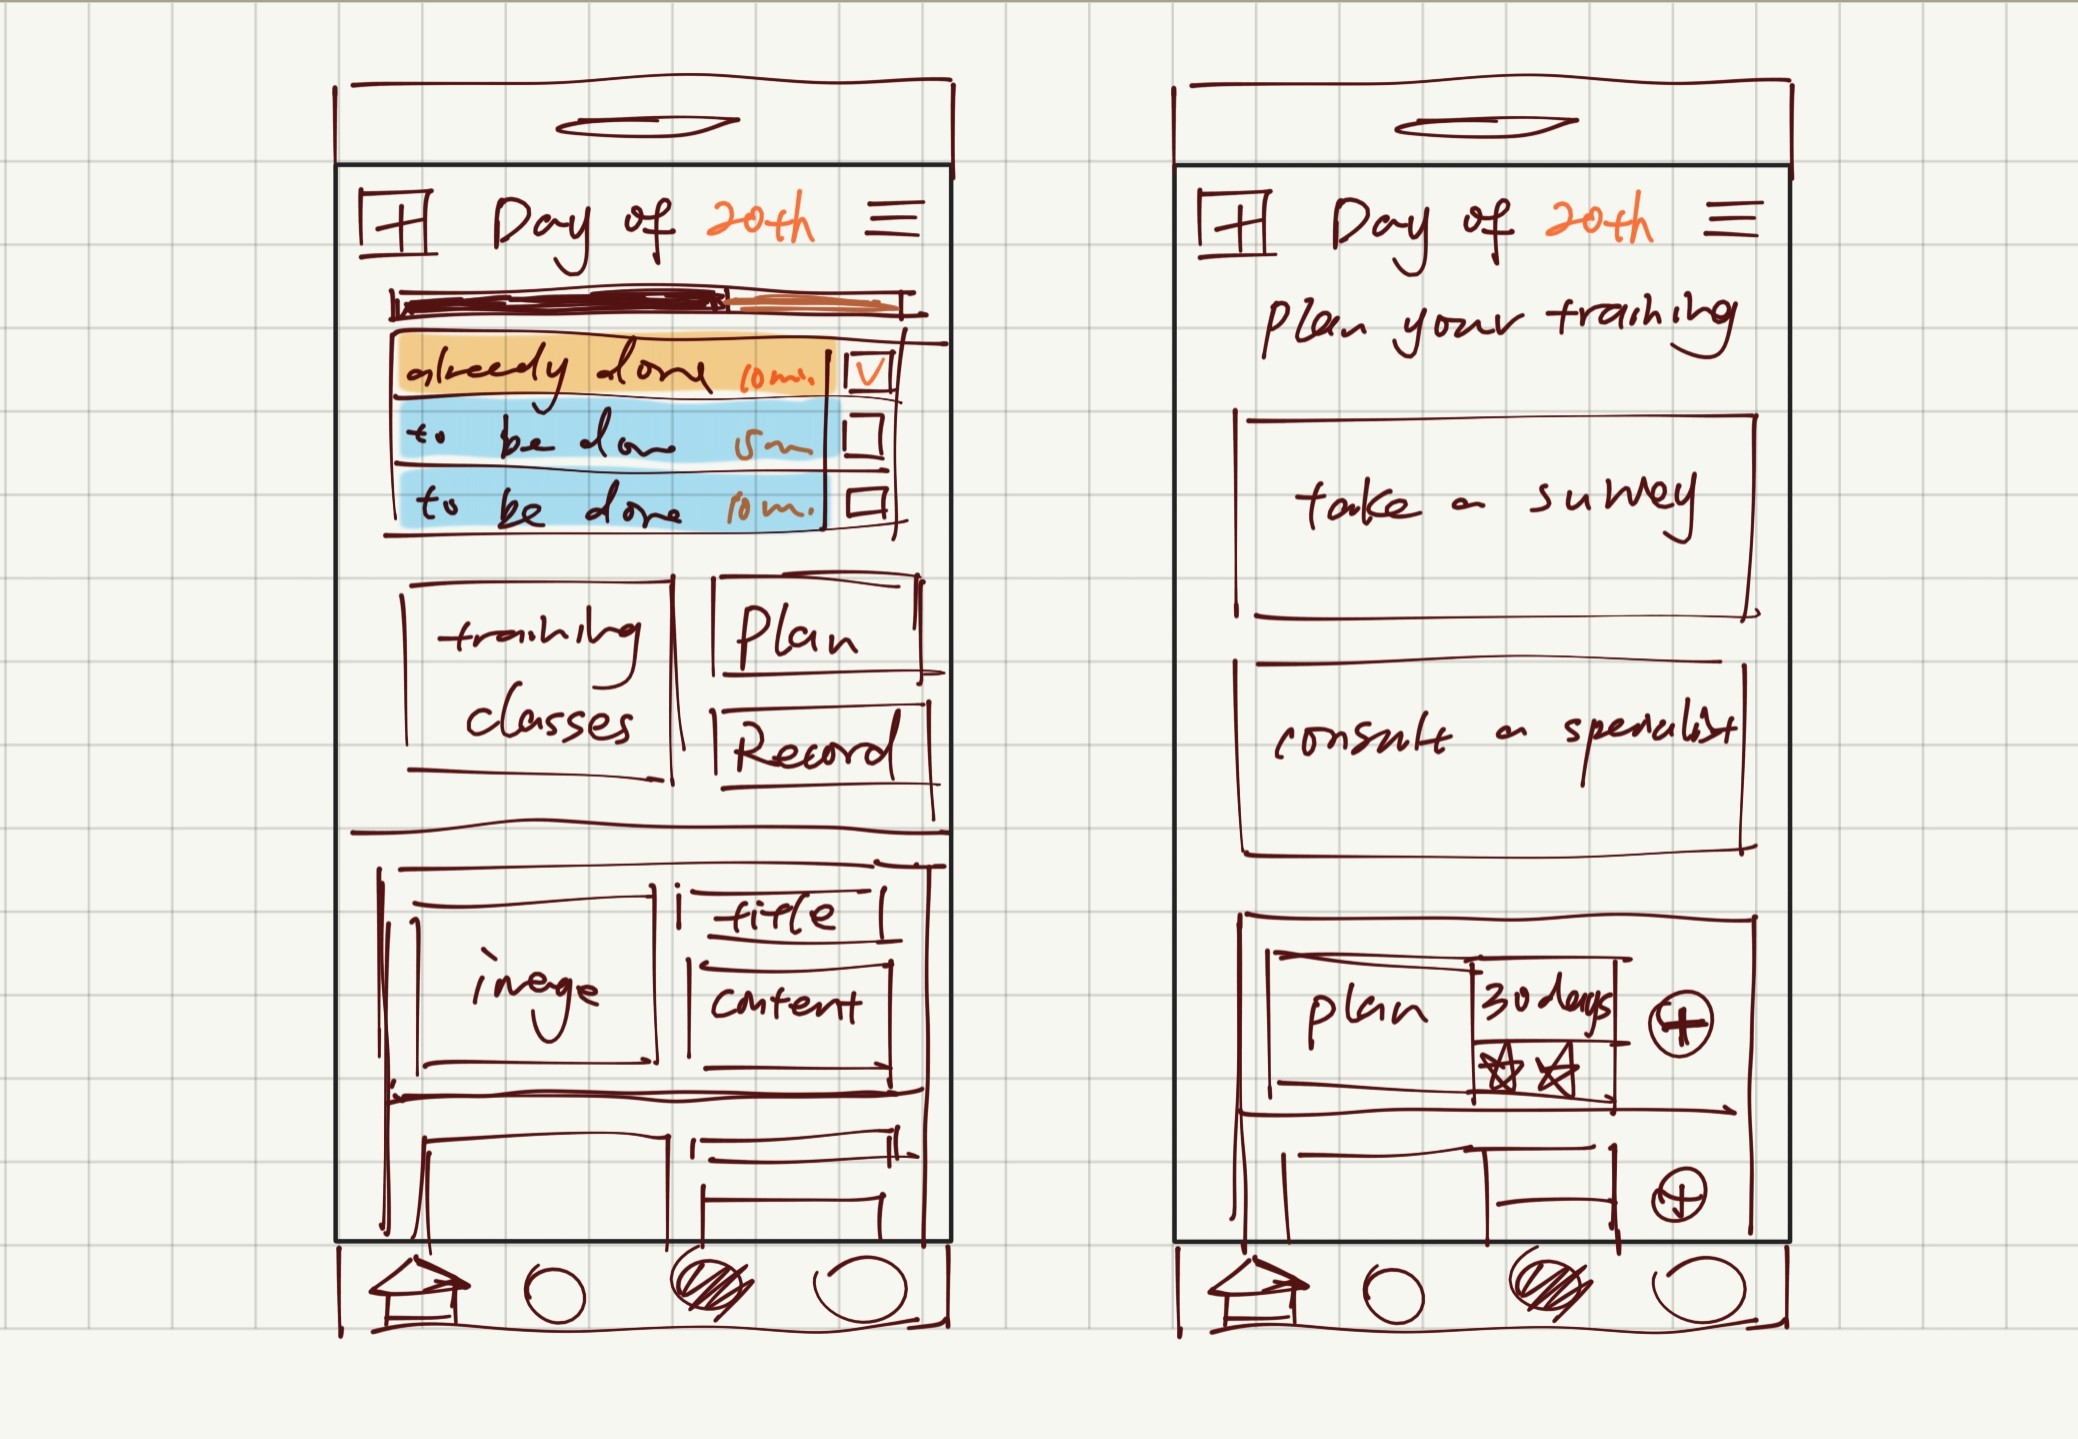 Day of 20th
already done 10m.
to be done 15m
to be done 10m.
training
classes
Plan
Record
image
title
content
Day of 20th
plan your training
take a survey
consult a specialist
plan
30days